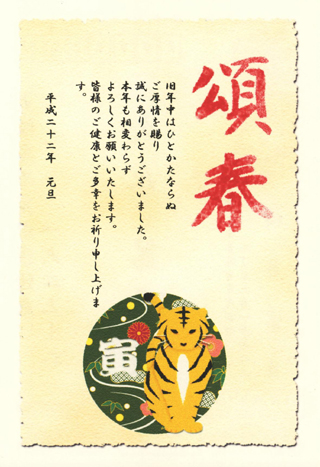 頌春
旧年中はひとかたならぬ
ご厚情を賜り
誠にありがとうございました。
本年も相変わらず
よろしくお願いいたします。
皆様のご健康とご多幸をお祈り申し上げま
す。
平成二十二年　元旦
寅